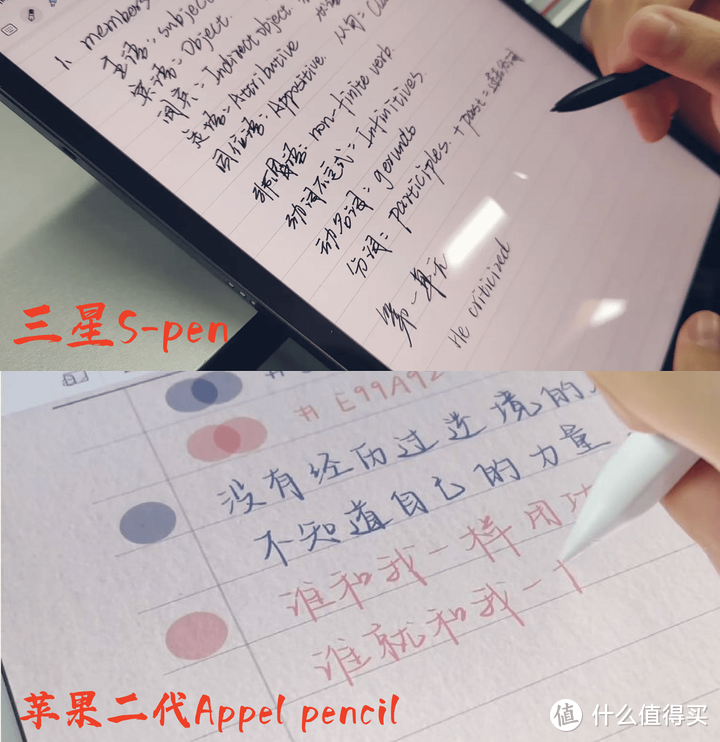 1. members
主语: subject
宾语: Object.
间宾: Indirect object.
定语: Attributive
同位语: Appositive. 从句:
非谓语: non-finite verb.
动词不定式 = Infinitives.
动名词: gerunds
分词: participles. + past =
第一单元
He criticized
三星S-pen
# E99A92
没有经历过逆境的
不知道自己的力量
谁和我一样用功
谁就和我一
苹果二代Appel pencil
值 什么值得买